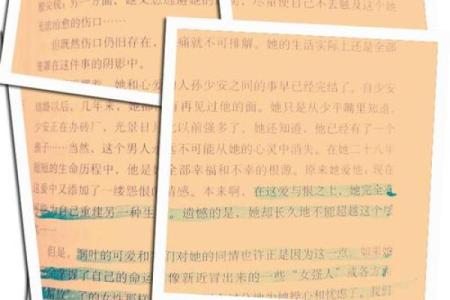 接尖锐；另一方面，她又总
街，尽量使自己不去触及这个她
无法治愈的伤口……
但既然伤口仍旧存在，痛就不可排解。她的生活实际上还是全部
笼罩在这件事的阴影中。
她和心爱的人孙少安之间的事早已经完结了。自少安
结婚以后，几年来，她也再见过他的面。她只是从少平嘴里知道，
少安正在办砖厂，光景日比以前强多了，她还知道，他已经有了一个
孩子……当然，这个男人不可能从她的心灵中消失。在她二十八年
短的生命历程中，他是她全部幸福和不幸的根源。原来她爱他，现在
这爱中又添加了一缕怨恨的情感。本来啊，在这爱与恨之上，她完全
为自己重建另一种生。遗憾的是，她却长久地不能超越这个
但是，润叶的可爱和们对她的同情也许正是因为这一点。如果她
了自己的命运，像新近冒出来的一些“女强人”或各方
了的女性那样，为她担心和忧虑了。我们